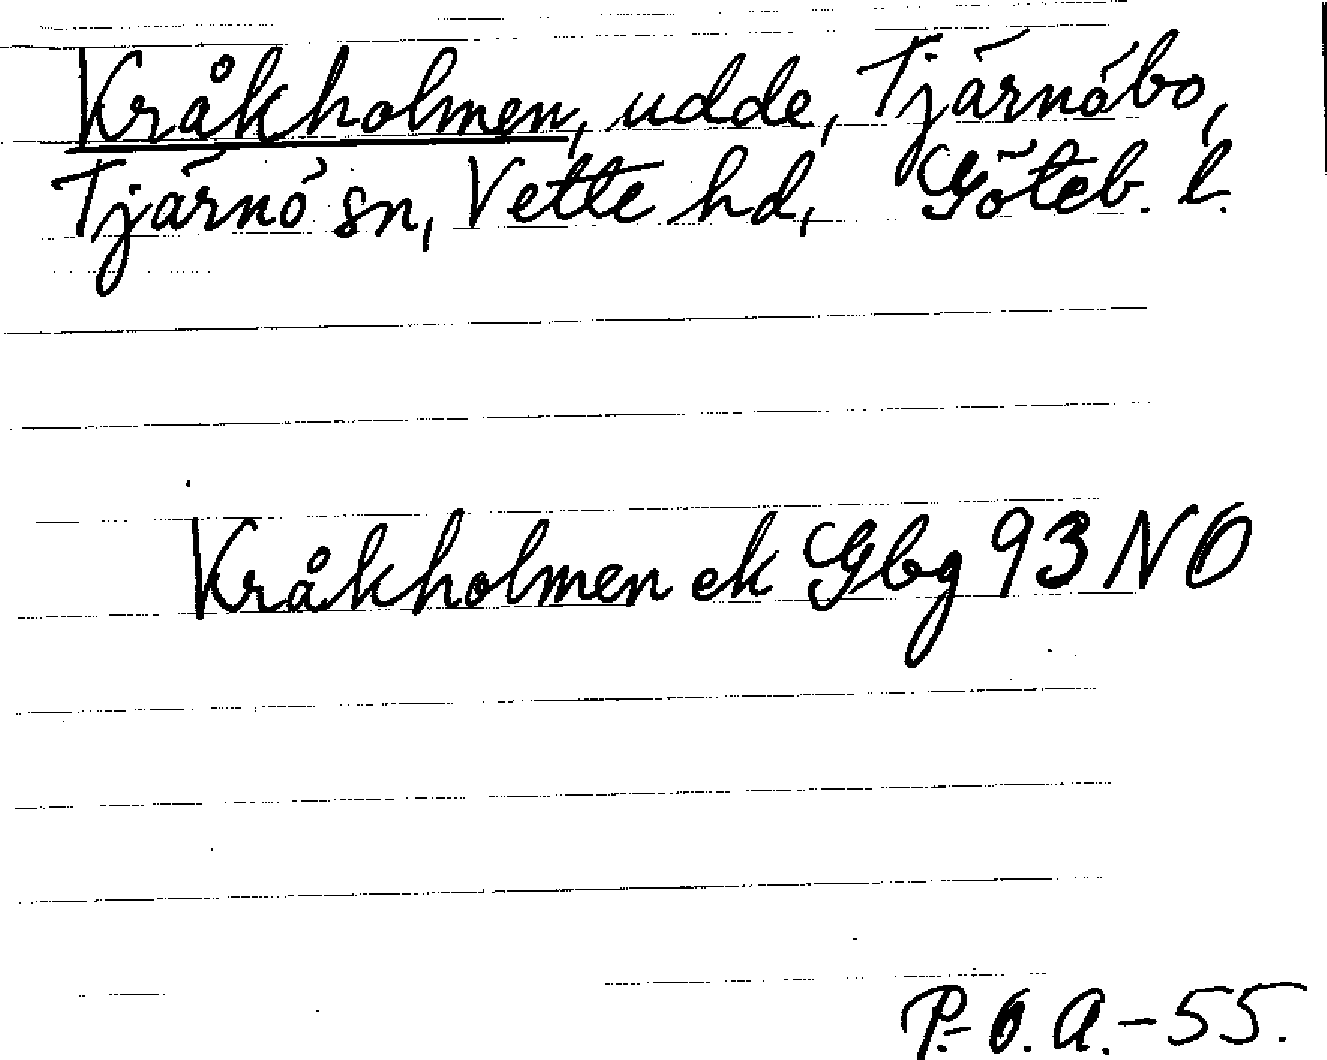 Kråkholmen, udde, Tjärnöbo,
Tjärnö sn, Vette hd, Göteb. l.
Kråkholmen ek Gbg 93 NO
P.-O. A. - 55.